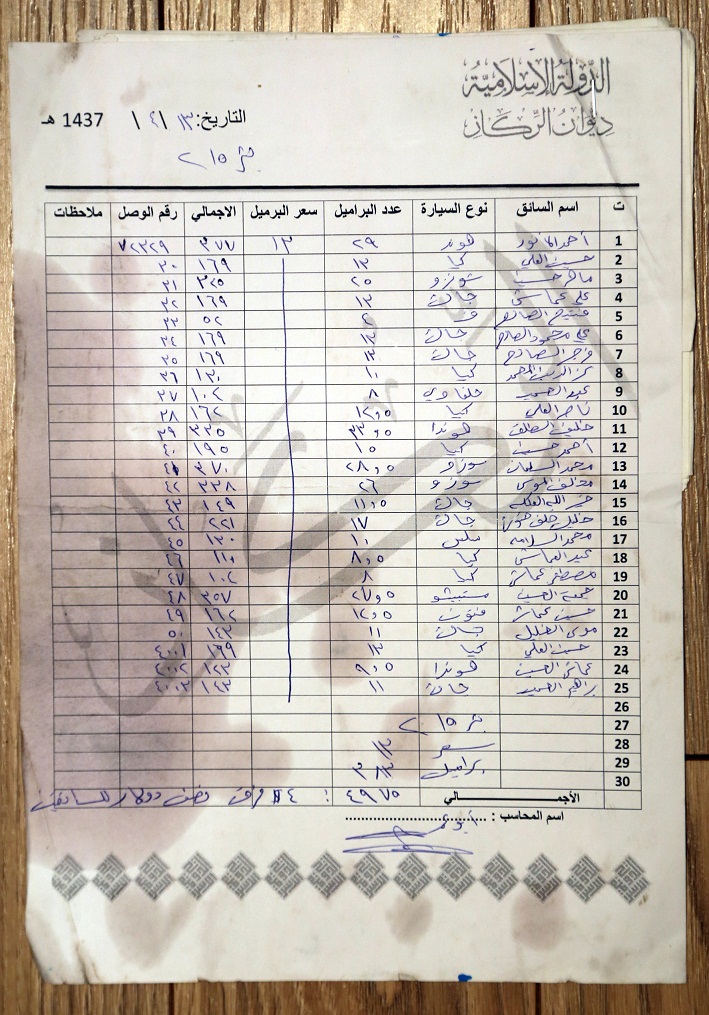 الدولة الإسلامية
ديوان الركاز
التاريخ: ١٣ / ٤ / 1437 هـ
بئر ١٥ ٢
ت اسم السائق نوع السيارة عدد البراميل سعر البرميل الاجمالي رقم الوصل ملاحظات
1 أحمد هوند ٢٩ ١٣ ٣٧٧ ٧٢٣٢٩
2 حسين العلي كيا ١٣ ١٦٩ ٣٠
3 ماهر حسين سوزو ٢٥ ٣٢٥ ٣١
4 علي عماش جاك ١٣ ١٦٩ ٣٢
5 الصالح ٤ ٥٢ ٣٣
6 علي محمود الصالح جاك ١٣ ١٦٩ ٣٤
7 فرج الصالح جاك ١٣ ١٦٩ ٣٥
8 كيا ١٠ ١٣٠ ٣٦
9 عبد الحميد حلفاوي ٨ ١٠٢ ٣٧
10 ناصر العلي كيا ١٢,٥ ١٦٢ ٣٨
11 خليف هوندا ٣٣٥ ٣٩
12 أحمد حسين كيا ١٥ ١٩٥ ٤٠
13 محمد السلمان سوزو ٢٨,٥ ٣٧٠ ٤١
14 سوزو ٢٦ ٣٣٨ ٤٢
15 جاك ١١,٥ ١٤٩ ٤٣
16 خليل خلف جاك ١٧ ٢٢١ ٤٤
17 محمد السلامه ١٠ ١٣٠ ٤٥
18 عبد العماش كيا ٨,٥ ١١٠ ٤٦
19 مصطفى عماش كيا ٨ ١٠٢ ٤٧
20 جمعة الحسين متسبيشو ٢٧,٥ ٣٥٧ ٤٨
21 حسين عماش ١٢,٥ ١٦٢ ٤٩
22 موسى الخليل جاك ١١ ١٤٣ ٥٠
23 حسين العلي كيا ١٣ ١٩٩ ٤٠٠١
24 عماش الحسين هوندا ٩,٥ ١٢٣ ٤٠٠٢
25 الحميد جاك ١١ ١٤٣ ٤٠٠٣
26
27 بئر ١٥ ٢
28 سعر ١٣
29 براميل ٣٨٣
30
الأجمـــــالي ٤٩٧٥ : ٤$ فرق نصف دولار للسائقين
اسم المحاسب :